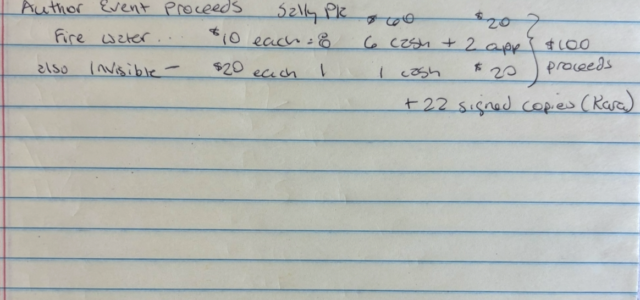 Author Event Proceeds Sally PK $60 $20
Fire Water... $10 each = 8 6 cash + 2 app $100
also Invisible - $20 each 1 1 cash $20 proceeds
+ 22 signed copies (Kara)